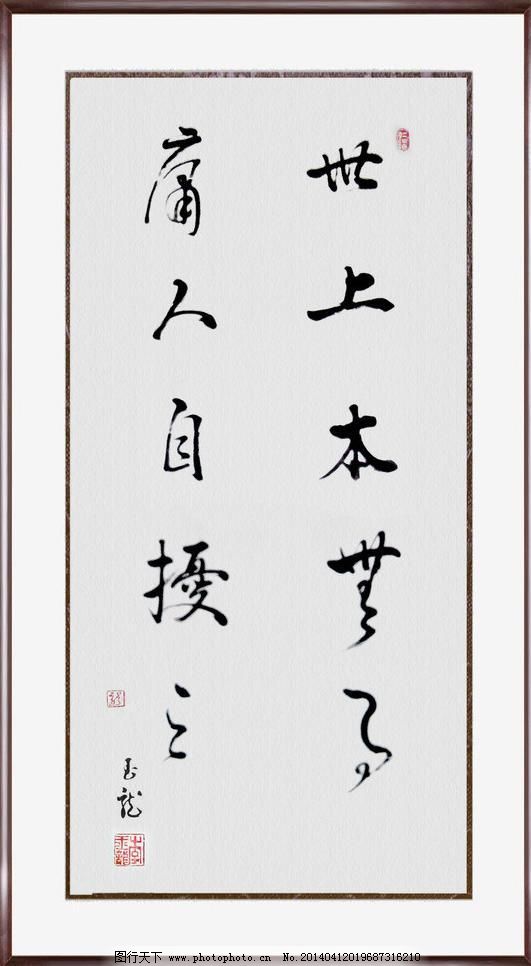 世上本無事
庸人自擾之
玉龍
图行天下 www.photophoto.cn No.20140412019687316210